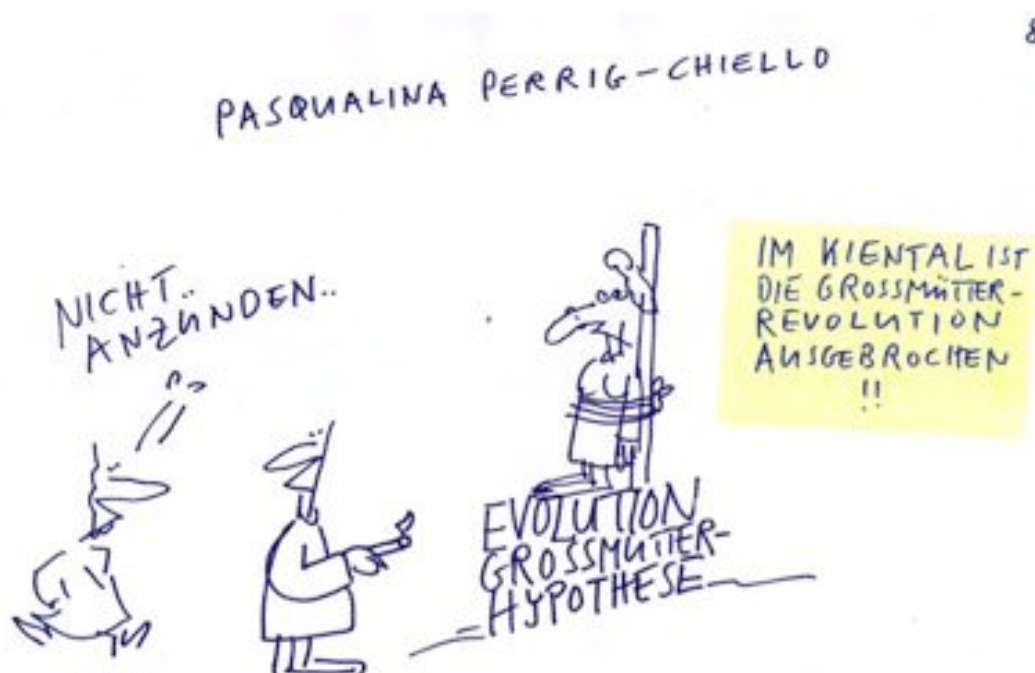 8
PASQUALINA PERRIG-CHIELLO
NICHT..
ANZÜNDEN..
IM KIENTAL IST
DIE GROSSMÜTTER-
REVOLUTION
AUSGEBROCHEN
!!
EVOLUTION
GROSSMÜTTER-
HYPOTHESE